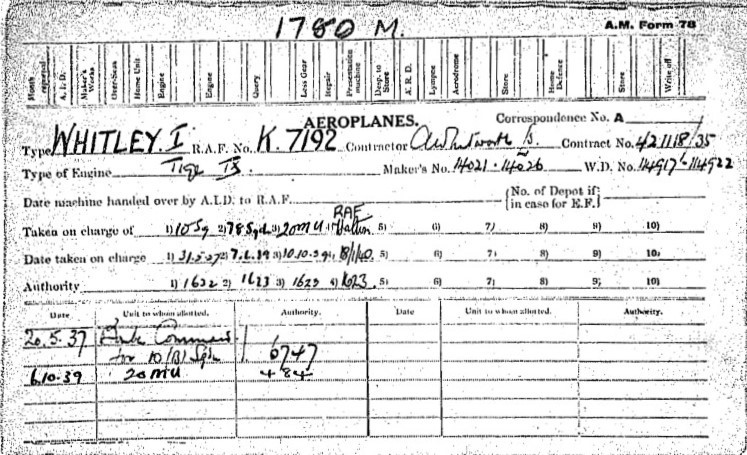 1780 M.
A.M. Form 78
Month reported A. I. D. Maker's Works Over-Seas Home Unit Engine Engine Query Less Gear Repair Presentation machine Desp. to Store A. R. D. Lympne Aerodrome Store Home Defence Store Write off
AEROPLANES. Correspondence No. A
Type WHITLEY. I R.A.F. No. K. 7192 Contractor Contract No. 421118/35
Type of Engine Tiger IX. Maker's No. 14021 - 14026 W.D. No. 114917 - 114922
Date machine handed over by A.I.D. to R.A.F. {No. of Depot if in case for E.F.}
RAF
Taken on charge of 1) 10 Sq 2) 78 Sqd 3) 20 MU 4) Halton 5) 6) 7) 8) 9) 10)
Date taken on charge 1) 31.5.37 2) 7. 39 3) 10.10.39 4) 18/1/40. 5) 6) 7) 8) 9) 10)
Authority 1) 1622 2) 1623 3) 1623 4) 1623. 5) 6) 7) 8) 9) 10)
Date Unit to whom allotted. Authority. Date Unit to whom allotted. Authority.
20.5.37 Command
for 10 (B) Sqdn 6747
6.10.39 20 MU 484